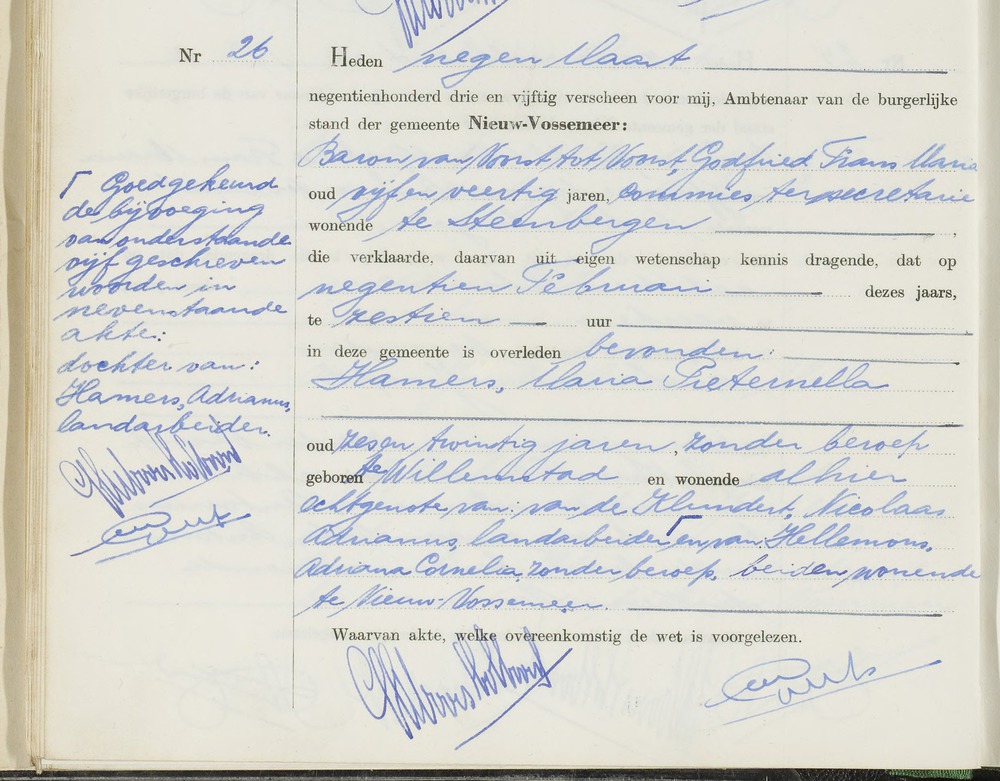 Nr 26
Heden negen Maart
negentienhonderd drie en vijftig verscheen voor mij, Ambtenaar van de burgerlijke
stand der gemeente Nieuw-Vossemeer:
Baron van Voorst tot Voorst, Godfried Frans Maria
oud vijf en veertig jaren, commies ter secretarie
wonende te Steenbergen,
die verklaarde, daarvan uit eigen wetenschap kennis dragende, dat op
negentien Februari dezes jaars,
te zestien uur
in deze gemeente is overleden bevonden:
Hamers, Maria Pieternella
oud zes en twintig jaren, zonder beroep
geboren te Willemstad en wonende alhier
echtgenote van: van de Klundert, Nicolaas
Adrianus, landarbeider ┌ en van Hellemons,
Adriana Cornelia, zonder beroep, beiden wonende
te Nieuw-Vossemeer.
Waarvan akte, welke overeenkomstig de wet is voorgelezen.
┌ Goedgekeurd
de bijvoeging
van onderstaande
vijf geschreven
woorden in
nevenstaande
akte:
dochter van:
Hamers, Adrianus,
landarbeider.